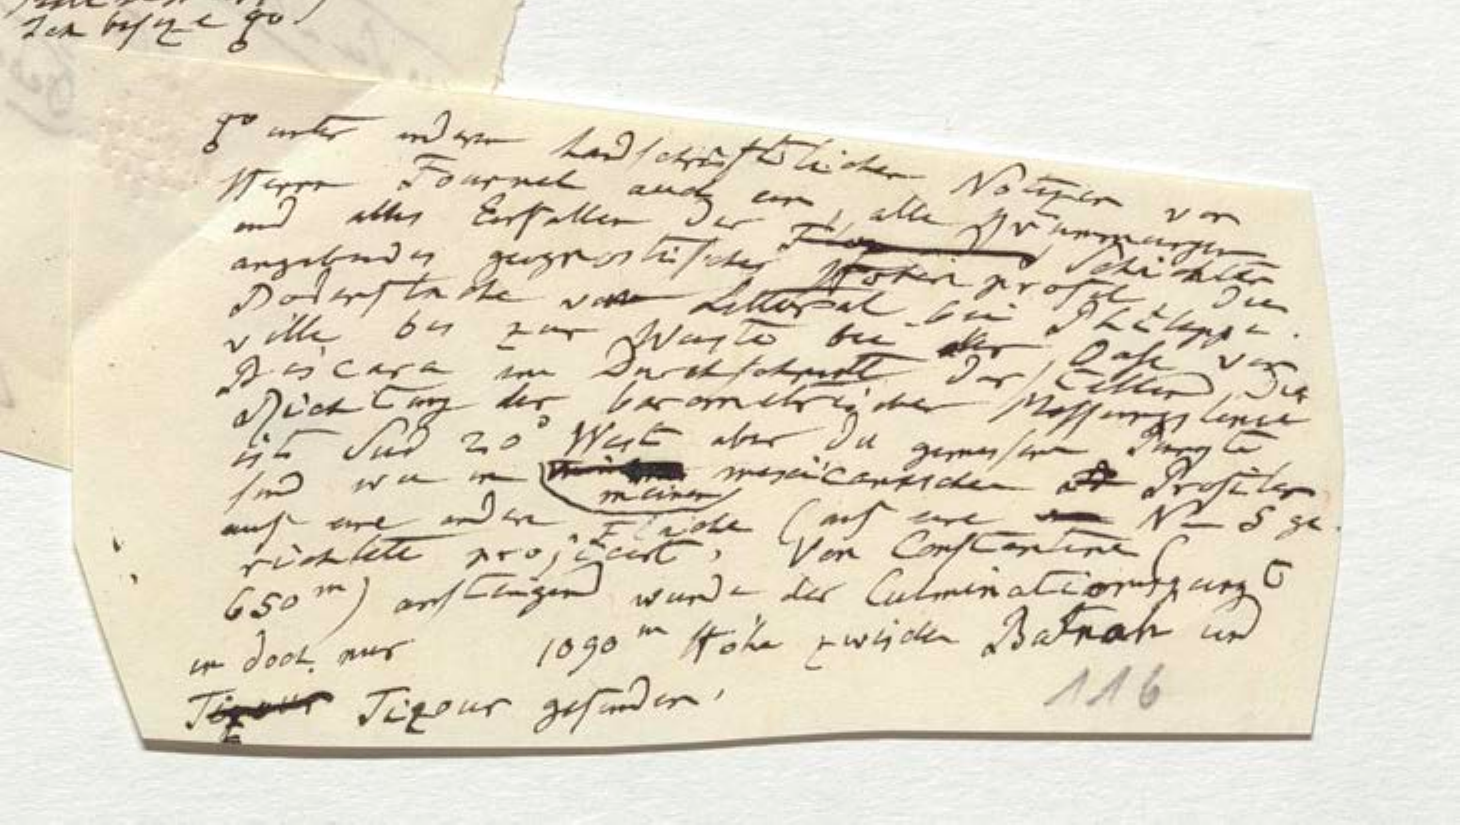 Ich besize
unter anderen handschriftlichen Notizen von
Herrn Fournel auch ein, alle Krümmungen
und alles Einfallen der Schichten
angebendes geognostisches Profil der
Bodenfläche vom Littoral bei Philippe-
ville bis zur Wüste bei der Oase von
Biscara im Durchschnitt der Tellus Die
Richtung der barometrischen Messungslinie
ist Süd 20° West aber die gemessenen Punkte
sind wie in meinen mexicanischen Profilen
auf eine andere Fläche (auf eine N–S ge-
richtete projicirt. Von Constantine (
650m) aufsteigend wurde der Culminationspunkt
in doch nur 1090m Höhe zwischen Batnah und
Tizour Tizour gefunden.
116